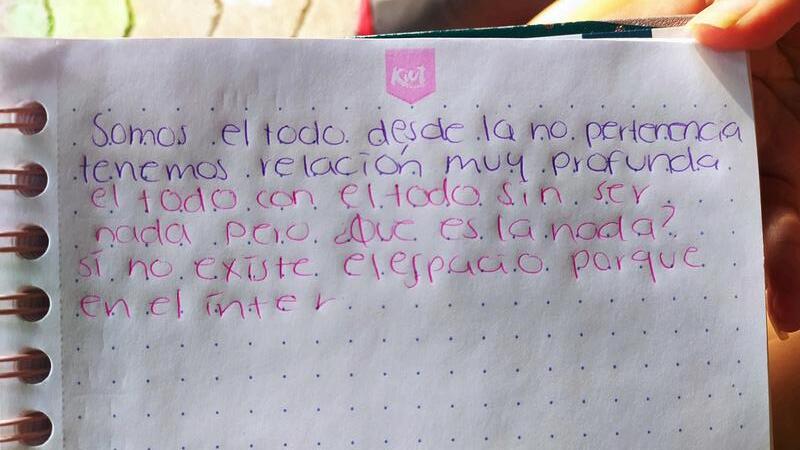 Kiut
Somos el todo desde la no pertenencia
tenemos relación muy profunda
el todo con el todo sin ser
nada pero ¿Que es la nada?
si no existe el espacio porque
en el inter